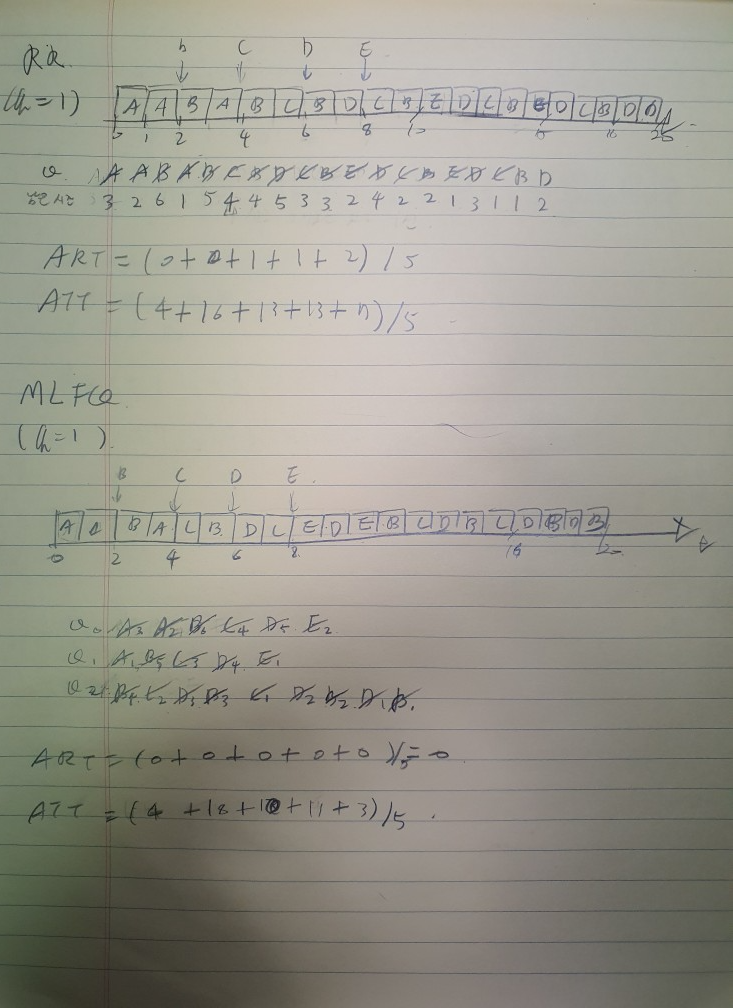 RR
B C D E
(Q=1) A A B A B C B D C B E D C B E D C B D D
0 1 2 4 6 8 10 15 20
Q. A A B A B C B D C B E D C B E D C B D
남은시간 3 2 6 1 5 4 4 5 3 3 2 4 2 2 1 3 1 1 2
ART = (0+0+1+1+2)/5
ATT = (4+16+13+13+7)/5
MLFQ
(Q=1)
B C D E
A A B A C B D C E D E B C D B C D B D B t
0 2 4 6 8 16 20
Q0 A3 A2 B6 C4 D5 E2
Q1 A1 B5 C3 D4 E1
Q2 B4 C2 D3 B3 C1 D2 B2 D1 B1
ART = (0+0+0+0+0)/5 = 0
ATT = (4+18+10+11+3)/5